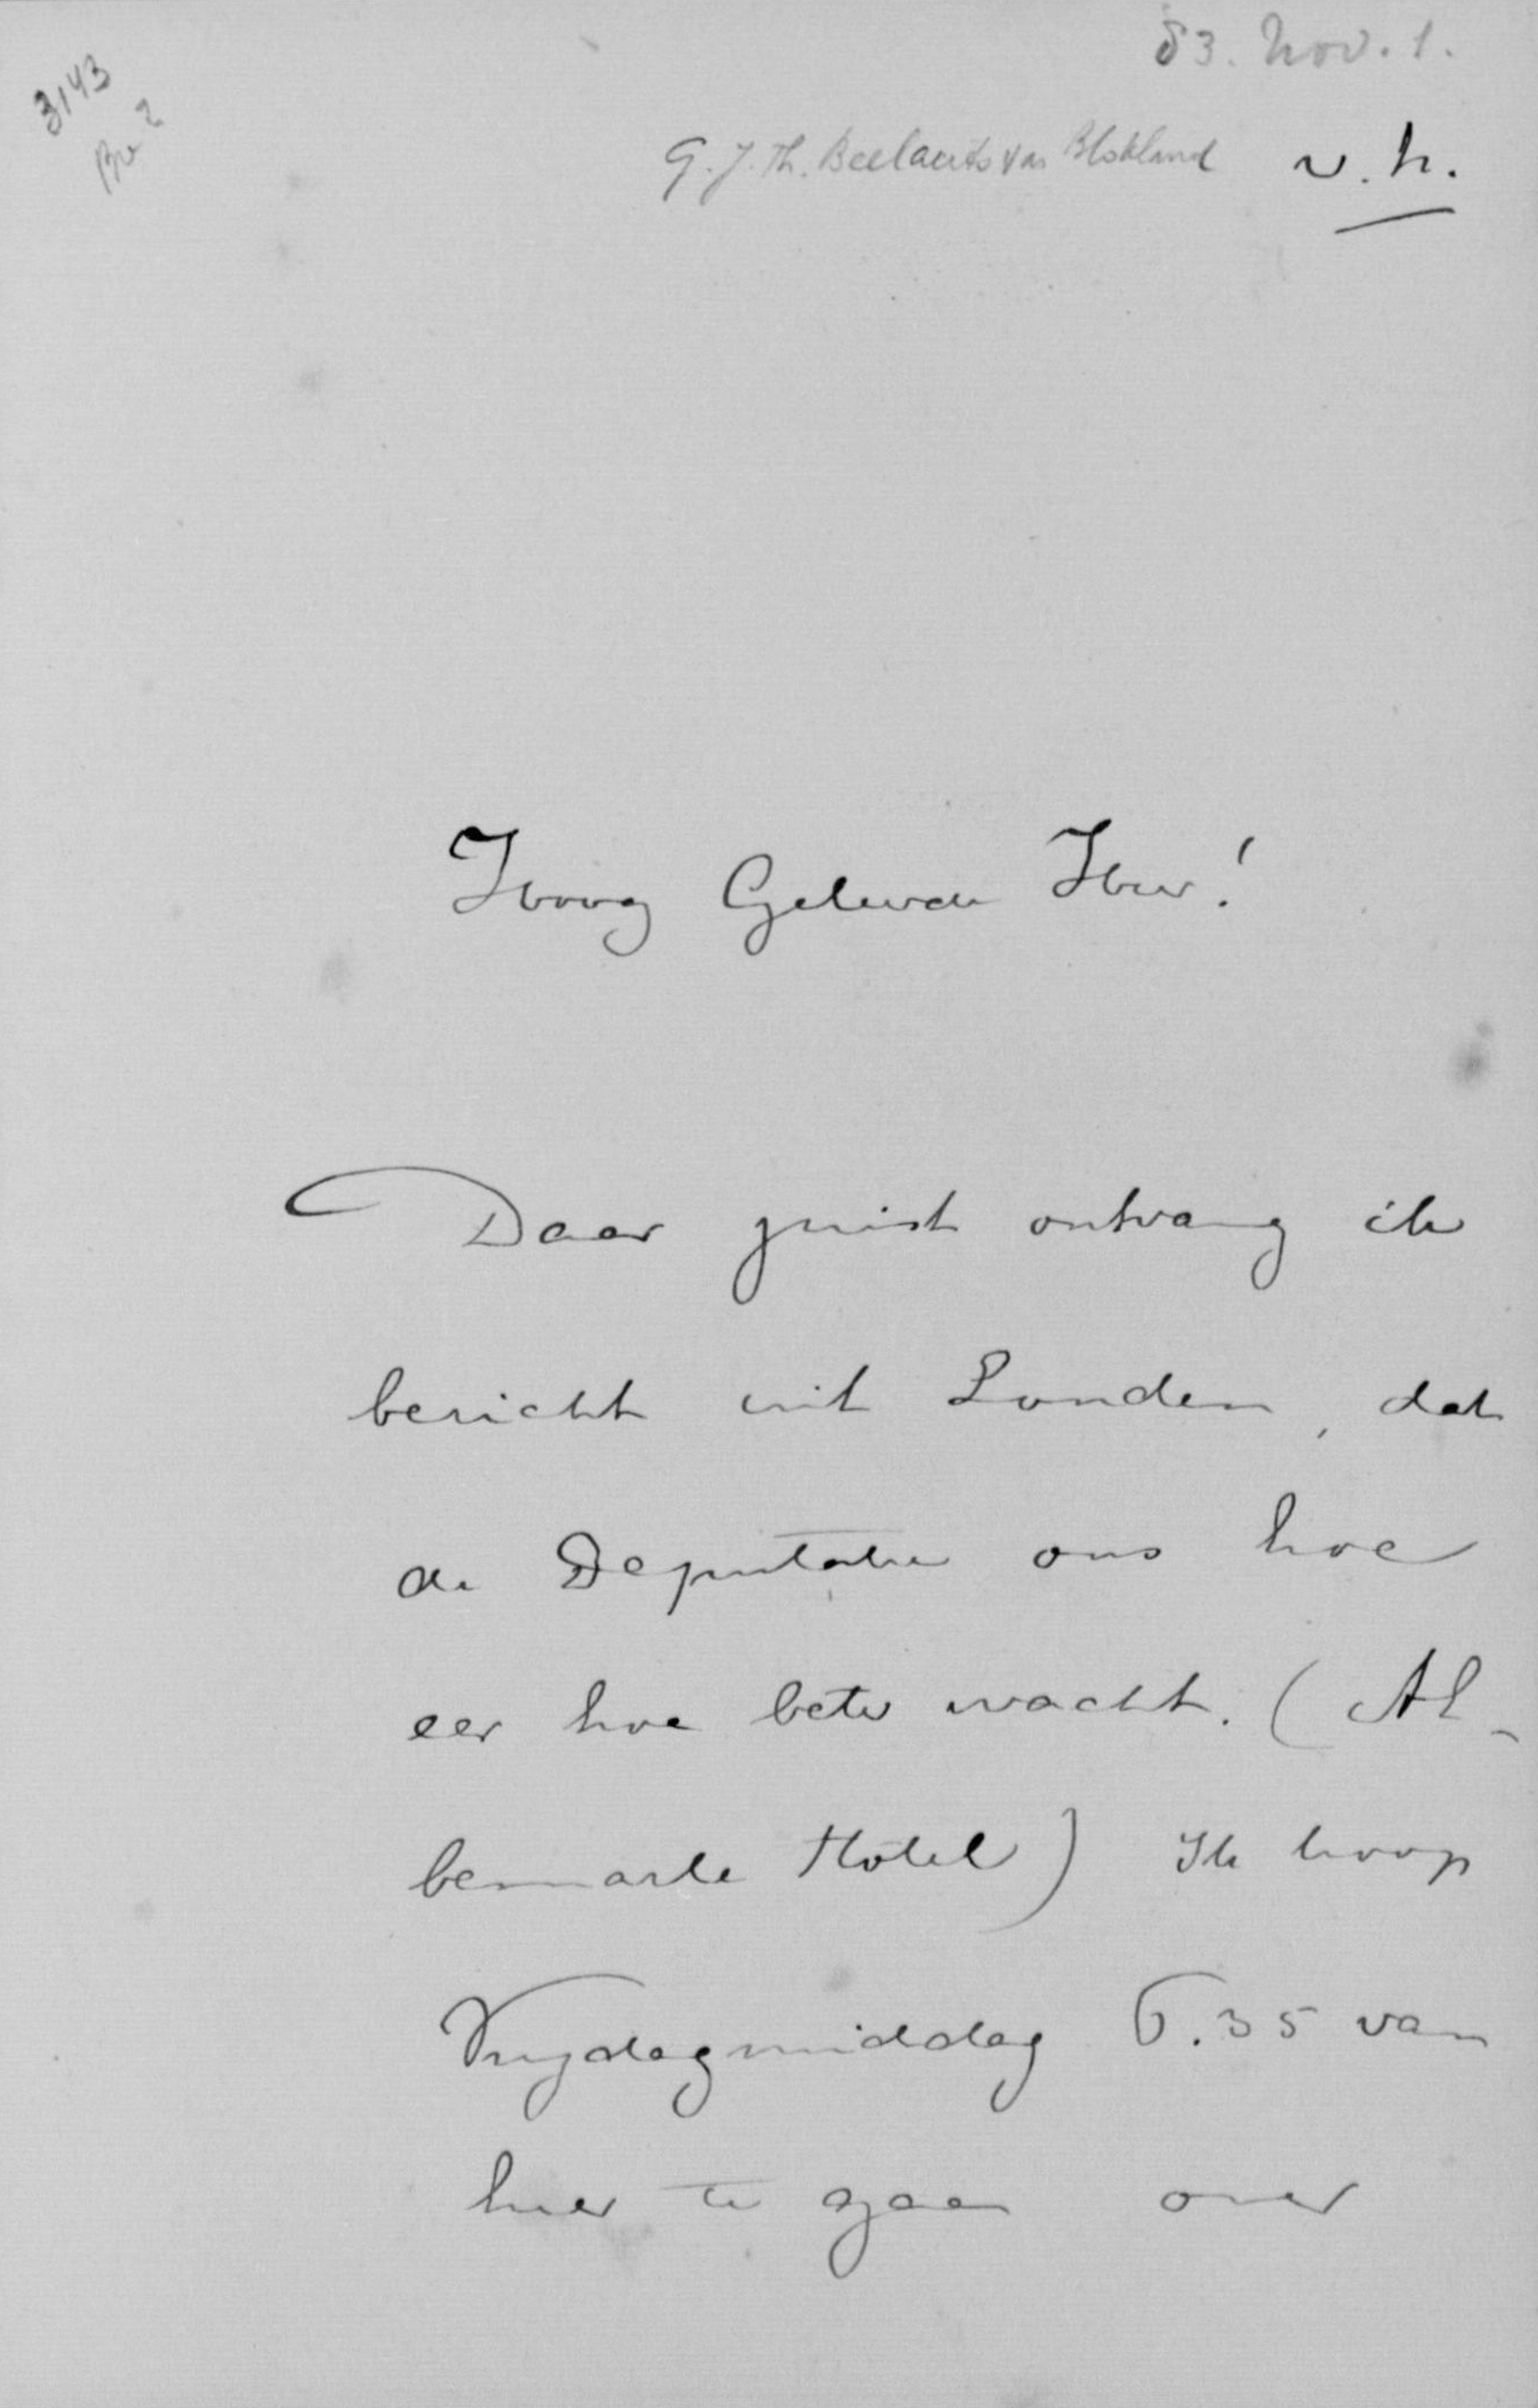 83. Nov. 1.
3143
Br 2
G. J. Th. Beelaerts van Blokland v. h.
Hoog Geleerde Heer!
Daar juist ontvang ik
bericht uit Londen, dat
de Deputatie ons hoe
eer hoe beter wacht. (Al-
bemarle Hôtel) Ik hoop
Vrijdagmiddag 6.35 van
hier te gaan over